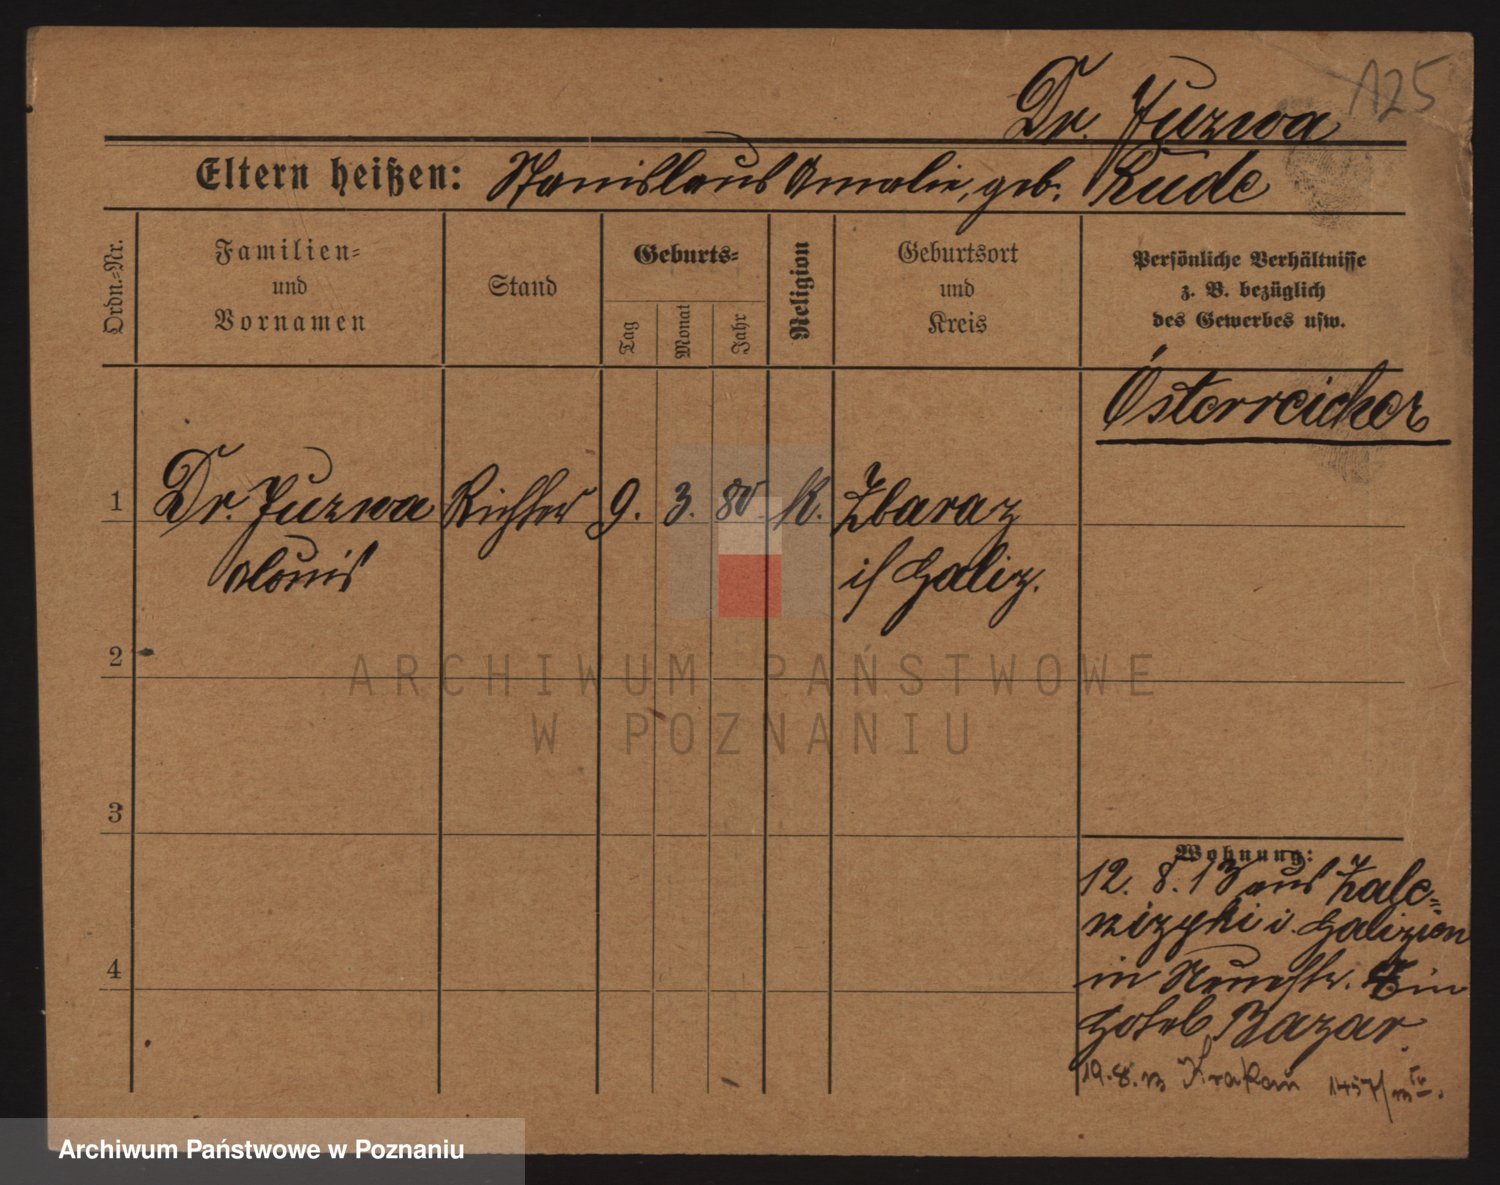 125
Dr. Juzwa
Eltern heißen: Stanislaus Amalie, geb. Rude
Ordn.-Nr.
Familien-
und
Vornamen
Stand
Geburts-
Tag
Monat
Jahr
Religion
Geburtsort
und
Kreis
Persönliche Verhältnisse
z. B. bezüglich
des Gewerbes usw.
Österreicher
1 Dr. Juzwa Richter 9. 3. 80. K. Zbaraz
Alouis i/ Galiz.
2
3
4
Wohnung:
12. 8. 13 aus Zale-
szizyki i. Galizien
in Neuestr. in
Hotel Bazar.
19.8.13 Krakau 1457/13 IV.
ARCHIWUM PAŃSTWOWE
W POZNANIU
Archiwum Państwowe w Poznaniu